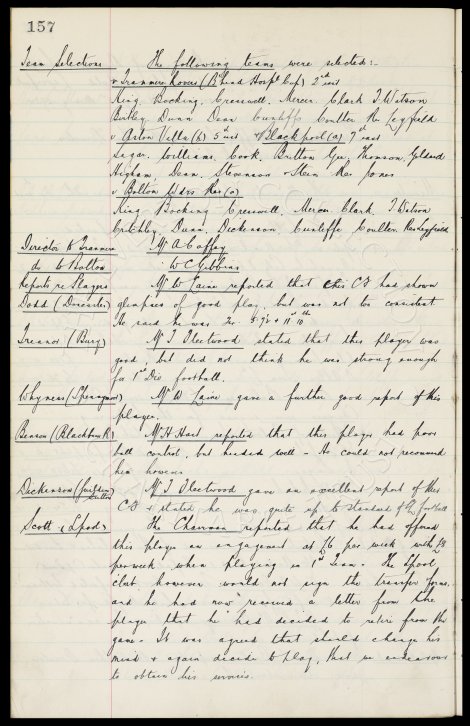 157
Team Selections The following teams were selected:-
v Tranmere Rovers (B'head Hospl Cup) 2nd inst
King, Bocking, Cresswell, Mercer, Clark, J. Watson
Dunn Dean Cunliffe Coulter Leyfield
v Aston Villa (h) 5th inst v Blackpool (a) 7th inst
Sagar, Williams, Cook, Britton Gee, Thomson, Geldard
Higham, Dean, Stevenson + Stein Res Jones
v Bolton Wdrs Res (a)
King Bocking Cresswell, Mercer Clark, J. Watson
Critchley, Dunn, Dickenson, Cunliffe Coulter. Res Leyfield
Director to Tranmere Mr A Coffey
do to Bolton " W C Gibbins
Reports re Players Mr W Laine reported that this C F had shown
Dodd (Doncaster) glimpses of good play, but was not too consistent
he said he was 11st 10lb
(Bury) Mr J Fleetwood stated that this player was
good, but did not think he was strong enough
for 1st Div. football.
Whyness (Spennymoor) Mr W Laine gave a further good report of this
player.
Benson (Blackburn) Mr H Hart reported that this player had poor
ball control, but headed well - He could not recommend
him however
Dickenson Mr J Fleetwood gave an excellent report of this
C F + stated he was quite up to standard of football
Scott (L'pool) The Chairman reported that he had offered
this player an engagement at £6 per week with £8
per week when playing in 1st Team. The L'pool
club however would not sign the transfer forms,
and he had now received a letter from the
player that he had decided to retire from the
game - It was agreed that should change his
mind + again decide to play, that we endeavour
to obtain his services.